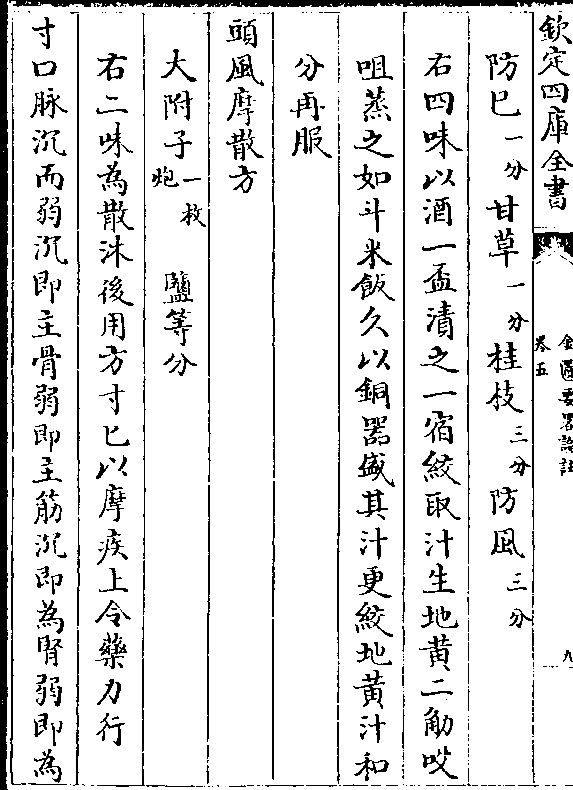 欽定四庫全書
金匱要畧論註
卷五
九
防已一分甘草一分桂枝三分防風三分
右四味以酒一盃漬之一宿絞取汁生地黄二觔㕮
咀蒸之如斗米飯久以銅器盛其汁更絞地黄汁和
分再服
頭風摩散方
大附子一枚炮　鹽等分
右二味為散沐後用方寸匕以摩疾上令藥力行
寸口脉沉而弱沉即主骨弱即主筋沉即為腎弱即為